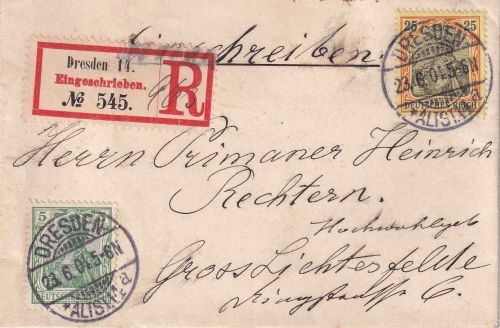 Einschreiben.
25 25
DEUTSCHES REICH
DRESDEN
23.6.01.5-6N
*ALTST.14 a
Dresden 14.
Eingeschrieben.
№ 545.
R
Herrn Primaner Heinrich
Rechtern.
Hochwohlgeb
Gross Lichterfelde
Ringstrasse 6.
5
DEUTSCHES REICH
DRESDEN
23.6.01.5-6N
*ALTST.14 a